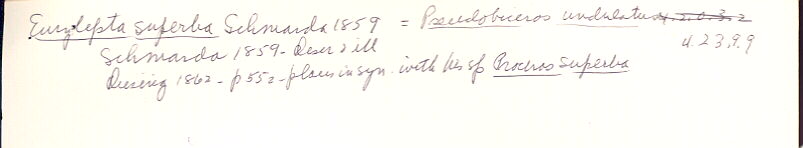 Eurylepta superba Schmarda 1859 = Pseudobiceros undulatus 4.2.0.3.2
4.23.9.9
Schmarda 1859 - Descr & ill
Diesing 1862 - p 552 - places in syn. with his sp Proceros superba